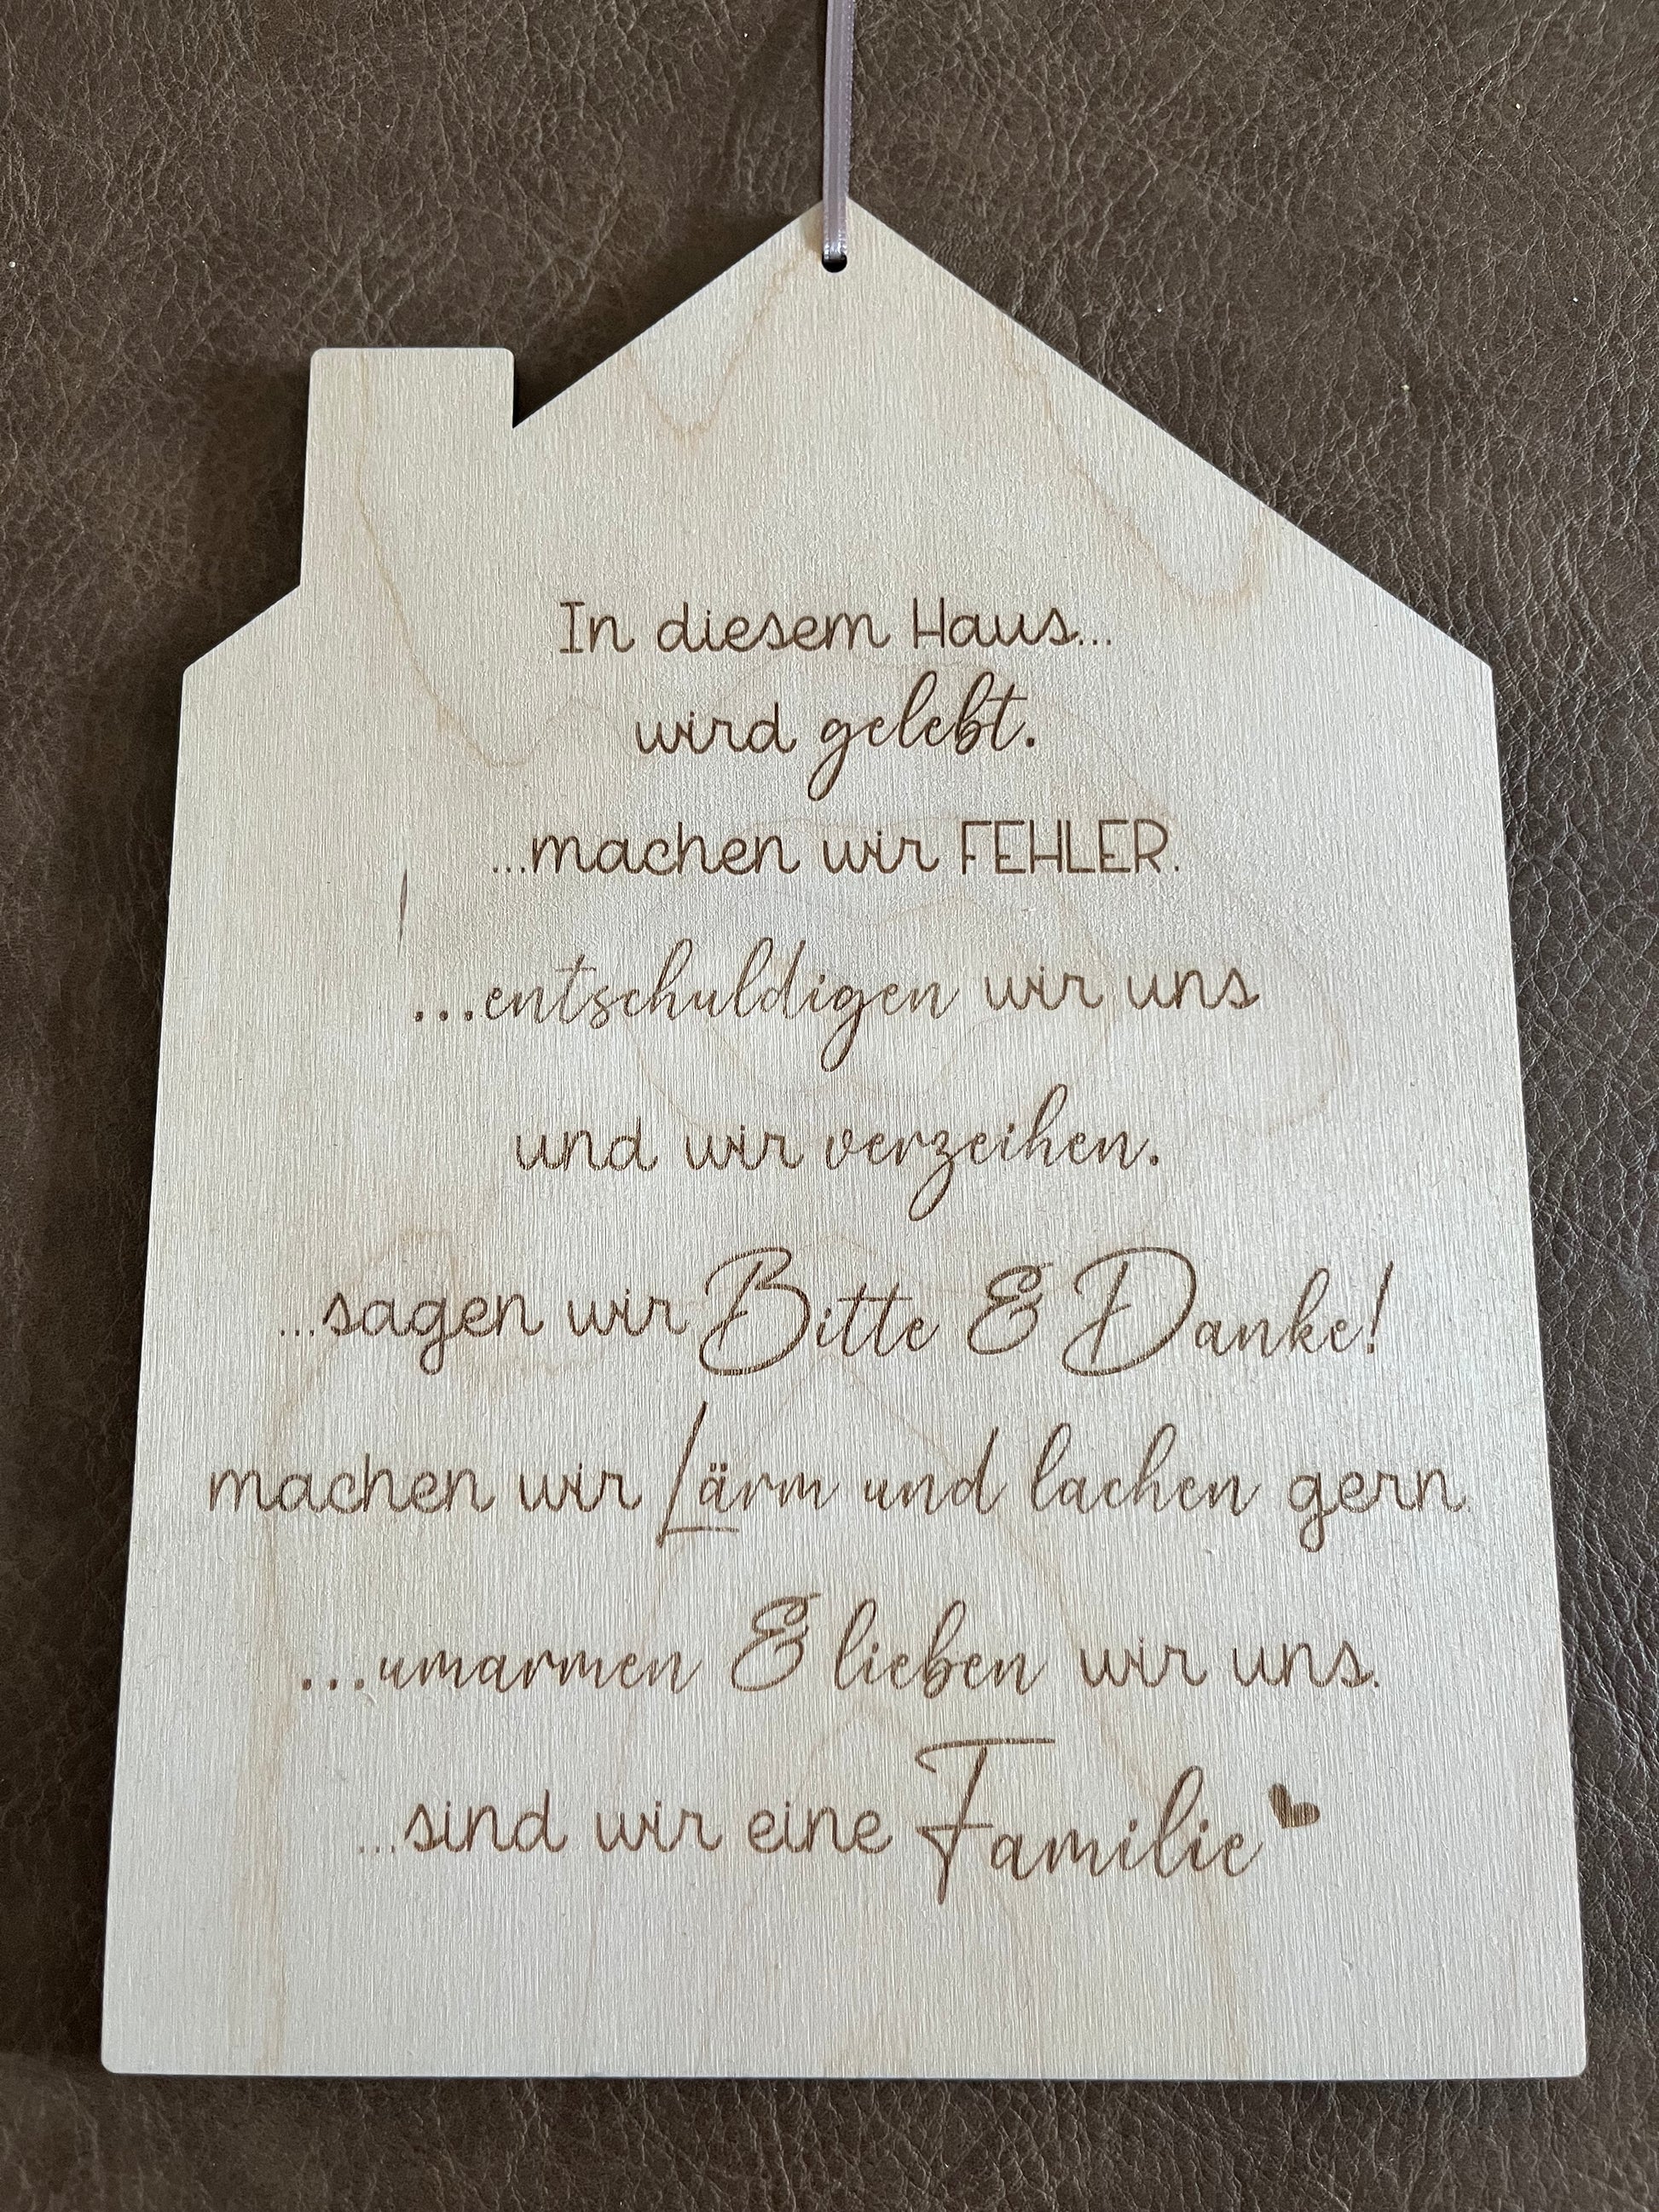 In diesem Haus...
wird gelebt.
...machen wir FEHLER.
...entschuldigen wir uns
und wir verzeihen.
...sagen wir Bitte & Danke!
machen wir Lärm und lachen gern.
...umarmen & lieben wir uns.
...sind wir eine Familie